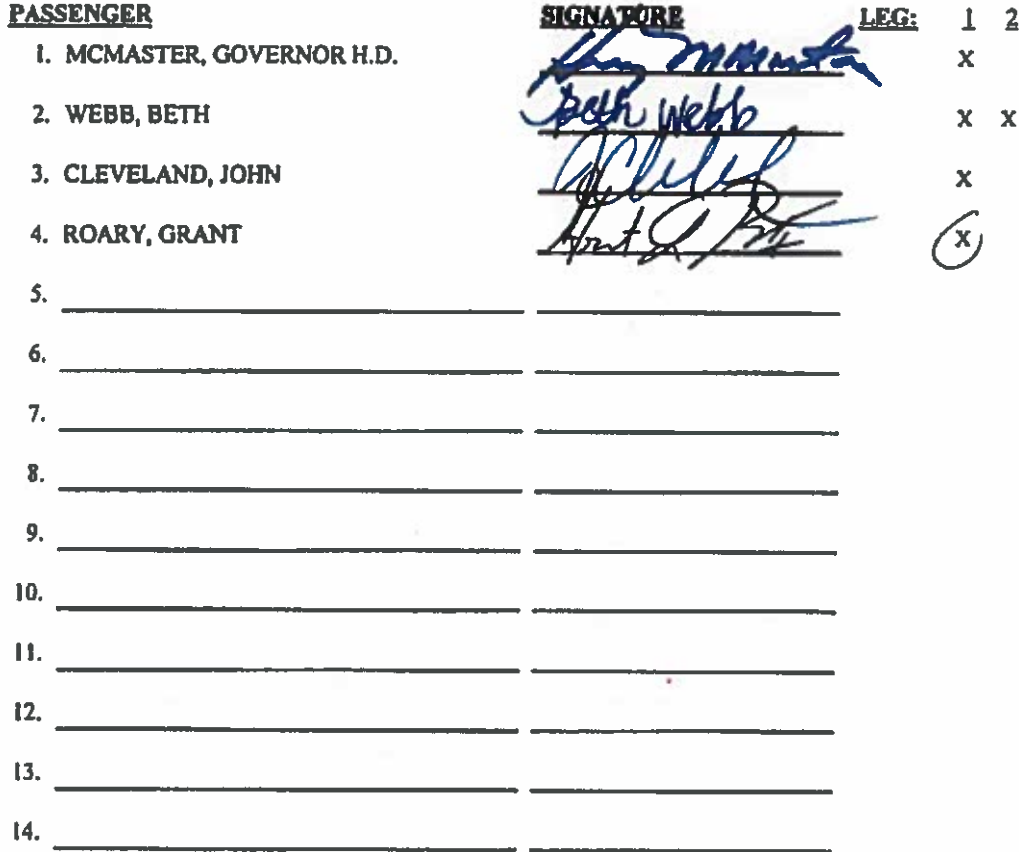 PASSENGER SIGNATURE LEG: 1 2
1. MCMASTER, GOVERNOR H.D. Henry McMaster X
2. WEBB, BETH Beth Webb X X
3. CLEVELAND, JOHN X
4. ROARY, GRANT X
5.
6.
7.
8.
9.
10.
11.
12.
13.
14.